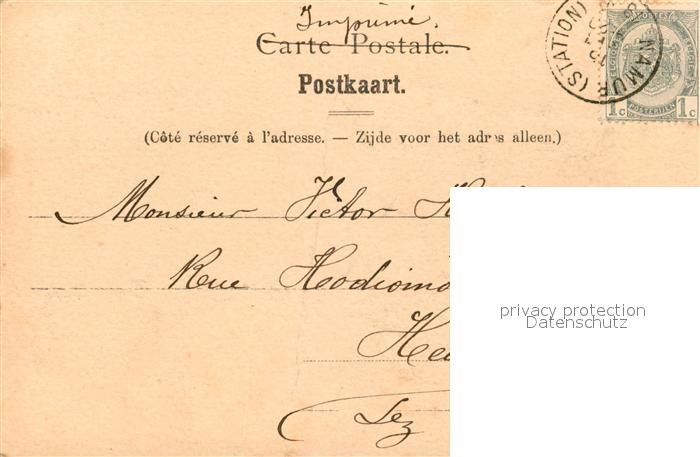 Imprimé.
Carte Postale.
Postkaart.
(Côté réservé à l'adresse. — Zijde voor het adres alleen.)
NAMUR (STATION)
1c POSTERIJEN 1c
Monsieur Victor
Rue
Lez
privacy protection
Datenschutz